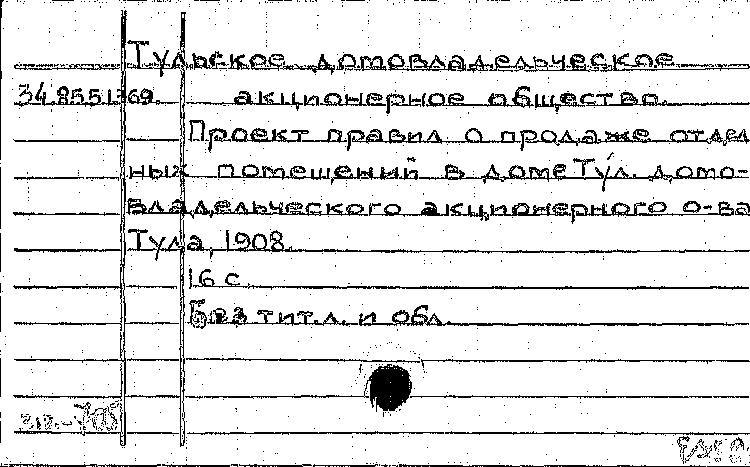 Тульское домовладельческое
34.8551369. акционерное общество.
Проект правил о продаже отдел
ных помещений в доме Тул. домо-
владельческого акционерного о-ва
Тула, 1908.
16 с
Без тит.л. и обл.